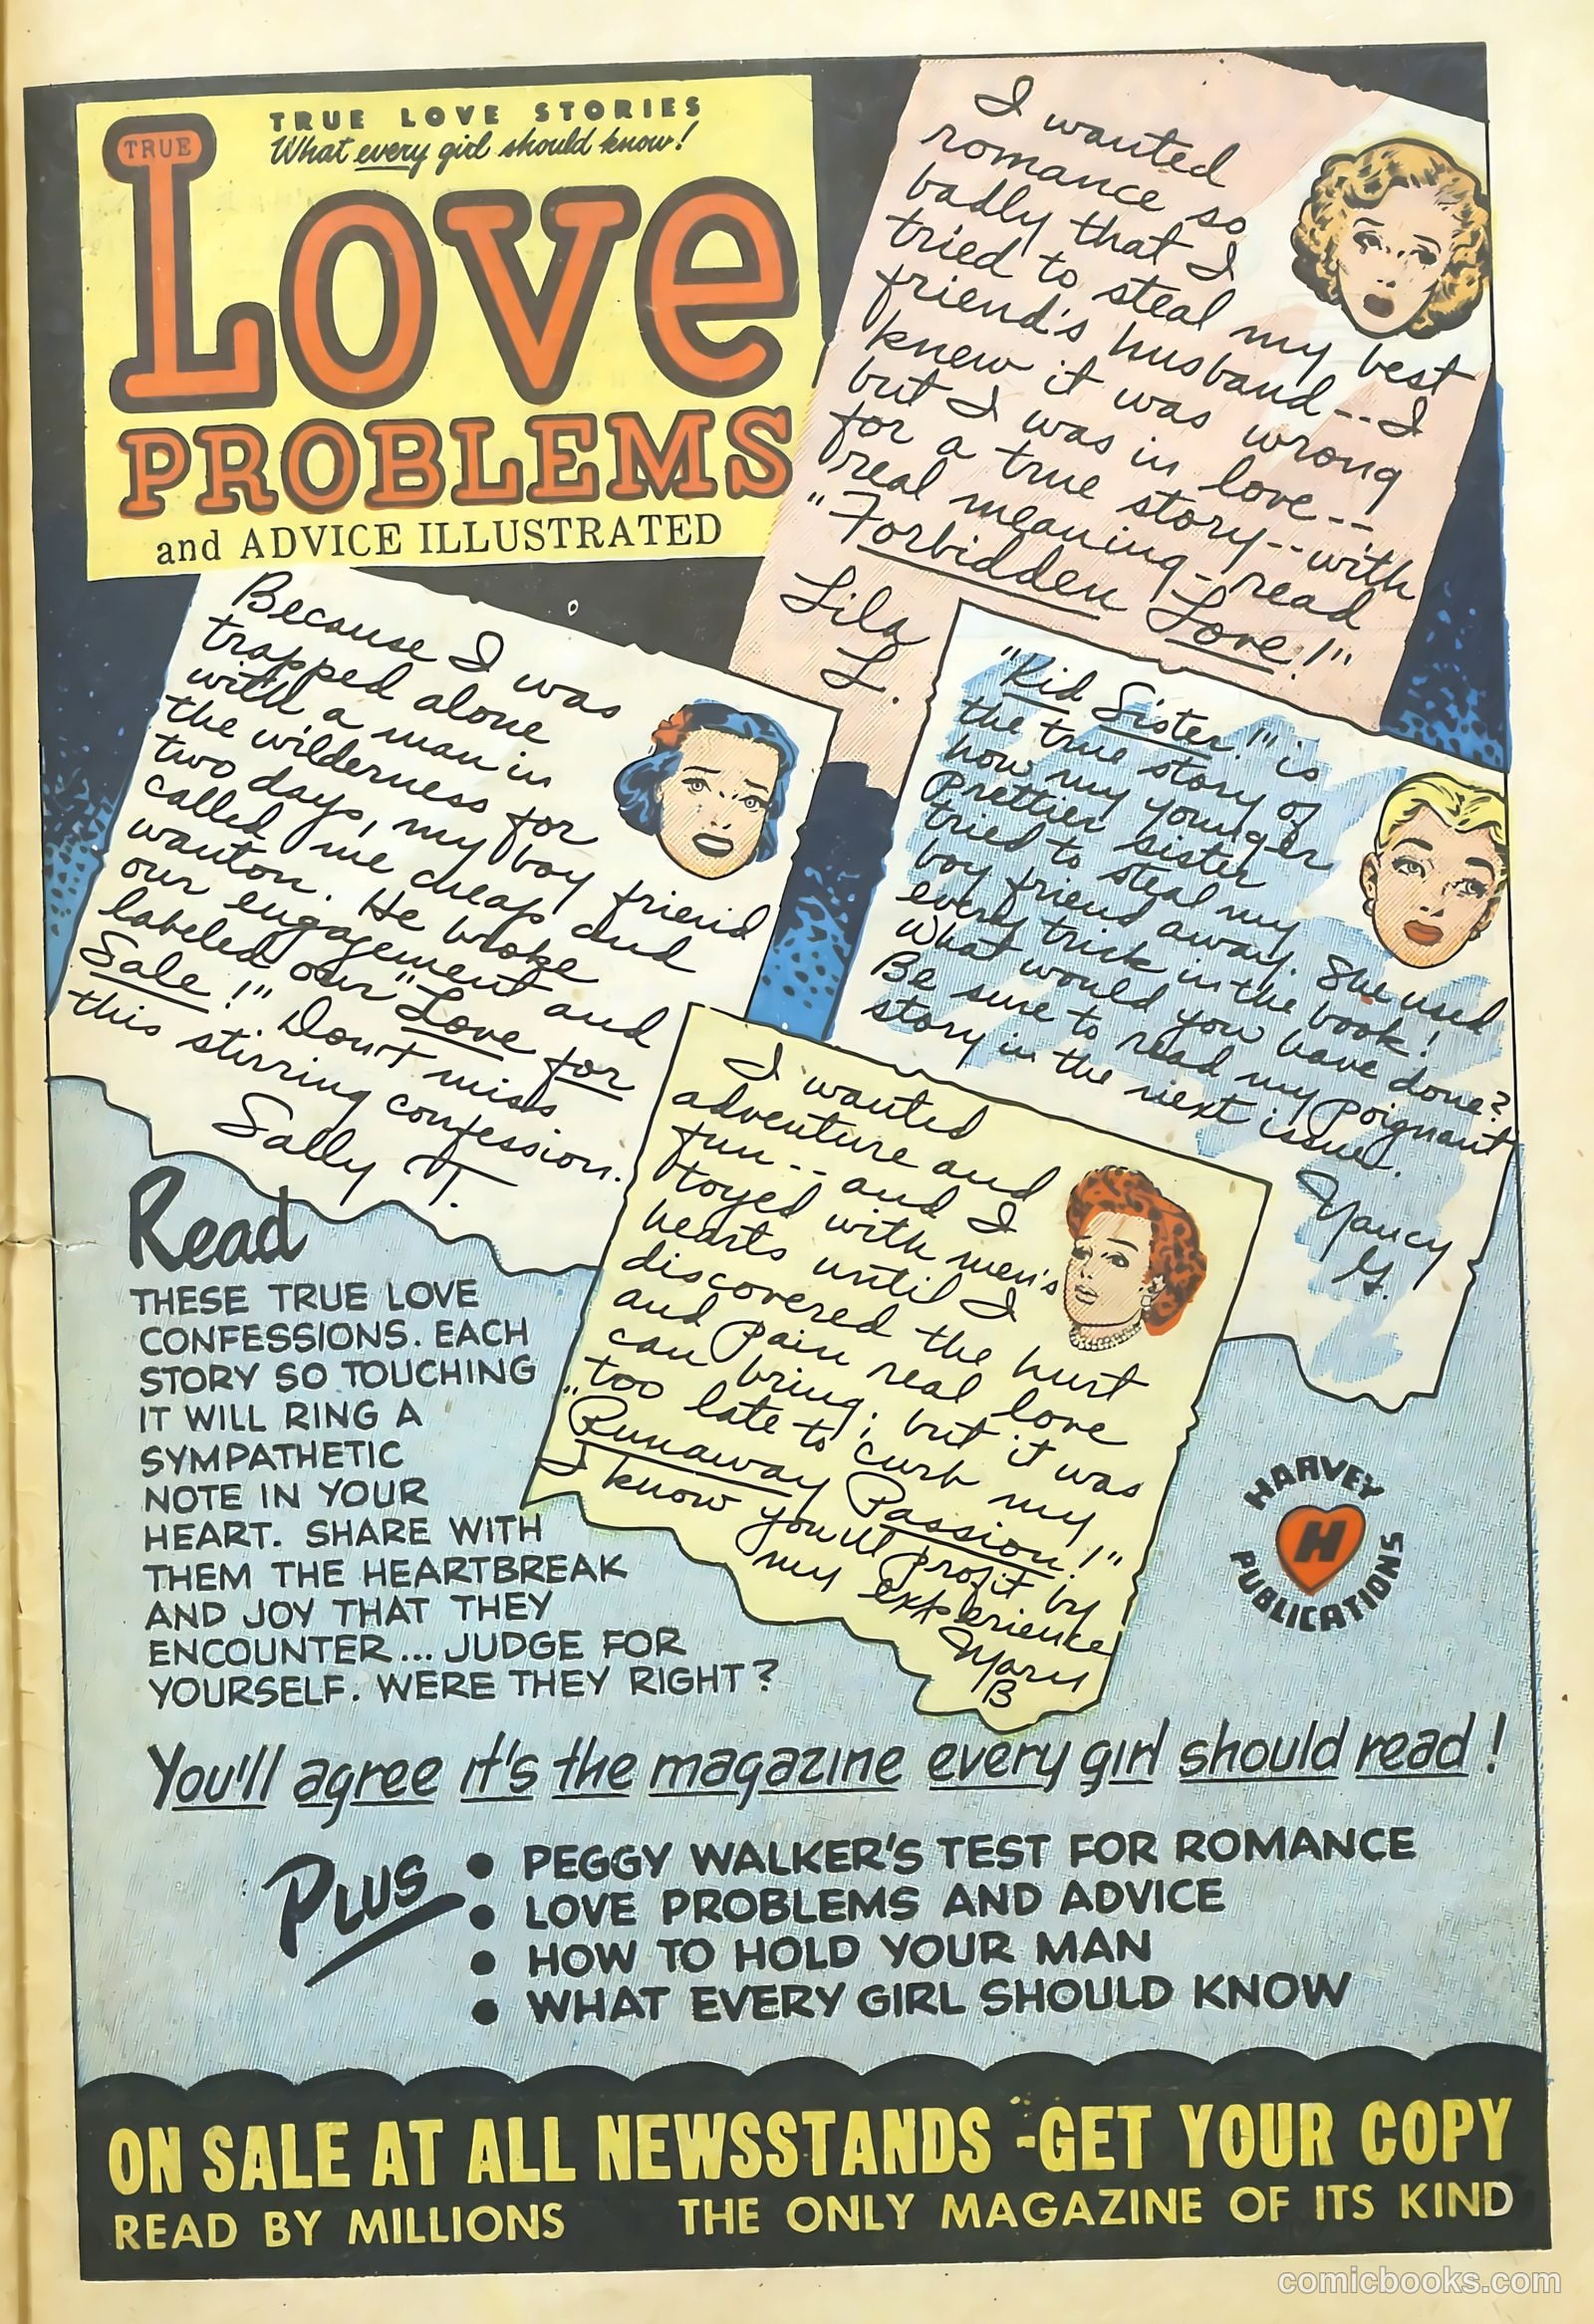 TRUE LOVE STORIES
What every girl should know!
TRUE
Love
PROBLEMS
and ADVICE ILLUSTRATED
I wanted
romance so
badly that I
tried to steal my best
friend's husband--I
knew it was wrong
but I was in love--
for a true story--with
real meaning-read
"Forbidden Love!"
Lila
L.
Because I was
trapped alone
with a man in
the wilderness for
two days, my boy friend
called me cheap and
wanton. He broke
our engagement and
labeled our "Love for
Sale!" Don't miss
this stirring confession.
Sally T.
"Kid Sister!" is
the true story of
how my younger
Prettier sister
tried to steal my
boy friend away. She used
every trick in the book!
What would you have done?
Be sure to read my Poignant
story in the next issue.
Nancy
G.
I wanted
adventure and
fun -- and I
toyed with men's
hearts until I
discovered the hurt
and Pain real love
can bring; but it was
too late to curb my
"Runaway Passion!"
I know you'll Profit by
my experience
Mary
B
Read
THESE TRUE LOVE
CONFESSIONS. EACH
STORY SO TOUCHING
IT WILL RING A
SYMPATHETIC
NOTE IN YOUR
HEART. SHARE WITH
THEM THE HEARTBREAK
AND JOY THAT THEY
ENCOUNTER...JUDGE FOR
YOURSELF. WERE THEY RIGHT?
HARVEY
H
PUBLICATIONS
You'll agree it's the magazine every girl should read!
PLUS
• PEGGY WALKER'S TEST FOR ROMANCE
• LOVE PROBLEMS AND ADVICE
• HOW TO HOLD YOUR MAN
• WHAT EVERY GIRL SHOULD KNOW
ON SALE AT ALL NEWSSTANDS -GET YOUR COPY
READ BY MILLIONS THE ONLY MAGAZINE OF ITS KIND
comicbooks.com